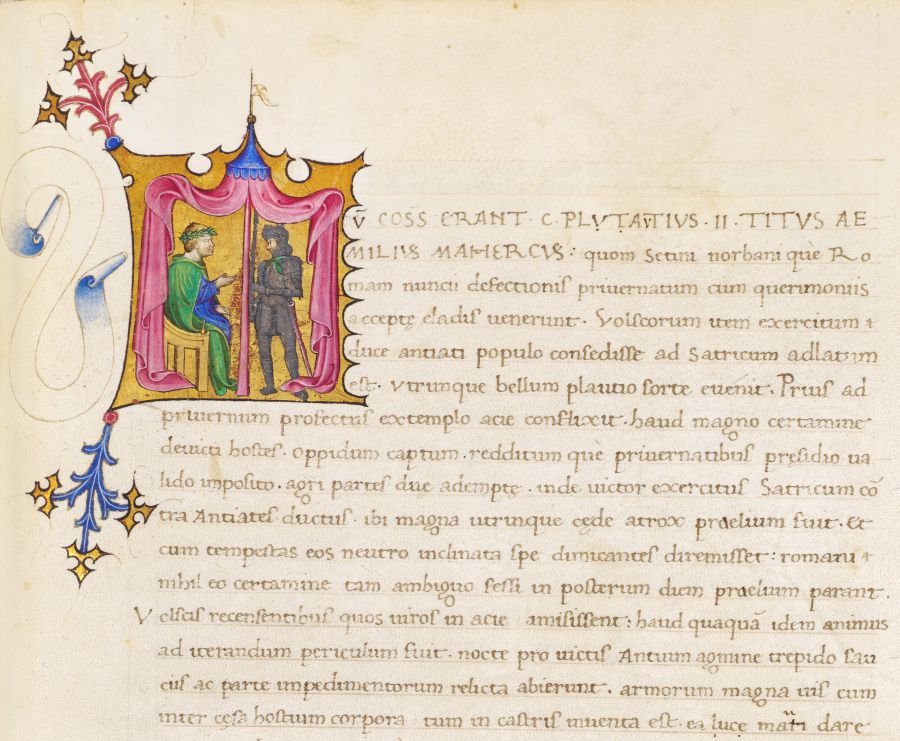 v̄ COSS ERANT · C · PLVTAVTIVS · II · TITVS AE
MILIVS MAMERCVS : quom Setini norbani què Ro
mam nuncii defectionis privernatum cum querimoniis
acceptę cladis venerunt · Volscorum item exercitum &
duce antiati populo consedisse ad Satricum adlatum
est · Vtrunque bellum plautio sorte evenit · Prius ad
privernum profectus extemplo acie conflixit · haud magno certamine
devicti hostes · oppidum captum · redditum què privernatibus pręsidio va
lido imposito · agri partes duę ademptę · inde victor exercitus Satricum cō
tra Antiates ductus · ibi magna utrinque cęde atrox praelium fuit · Et
cum tempestas eos neutro inclinata spe dimicantes diremisset : romani &
nihil eo certamine tam ambiguo fessi in posterum diem praelium parant ·
Volscis recensentibus quos viros in acie amisissent : haud quaquā idem animus
ad iterandum periculum fuit · nocte pro victis Antium agmine trepido sau
ciis ac parte impedimentorum relicta abierunt · armorum magna vis cum
inter cęsa hostium corpora tum in castris inventa est · ea luce matri dare